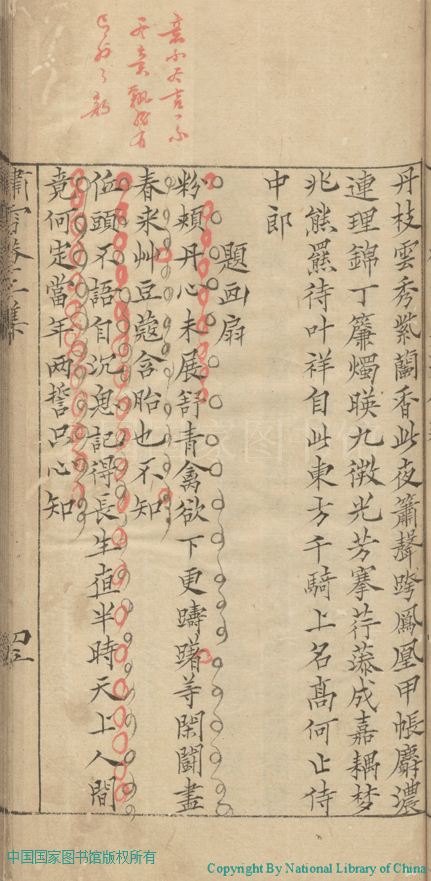 丹枝雲秀紫蘭香此夜簫聲跨鳳凰甲帳麝濃
連理錦丁簾燭暎九微光芳搴荇藻成嘉耦夢
兆熊羆待叶祥自此東方千騎上名髙何止侍
中郎
題画扇
粉頬丹心未展舒青禽欲下更躊躇等閑鬬盡
春来艸豆蔻含胎也不知
低頭不語自沉息記得長生直半時天上人間
竟何定當年两誓只心知
嘯雪菴二集
中国国家图书馆版权所有
Copyright By National Library of China